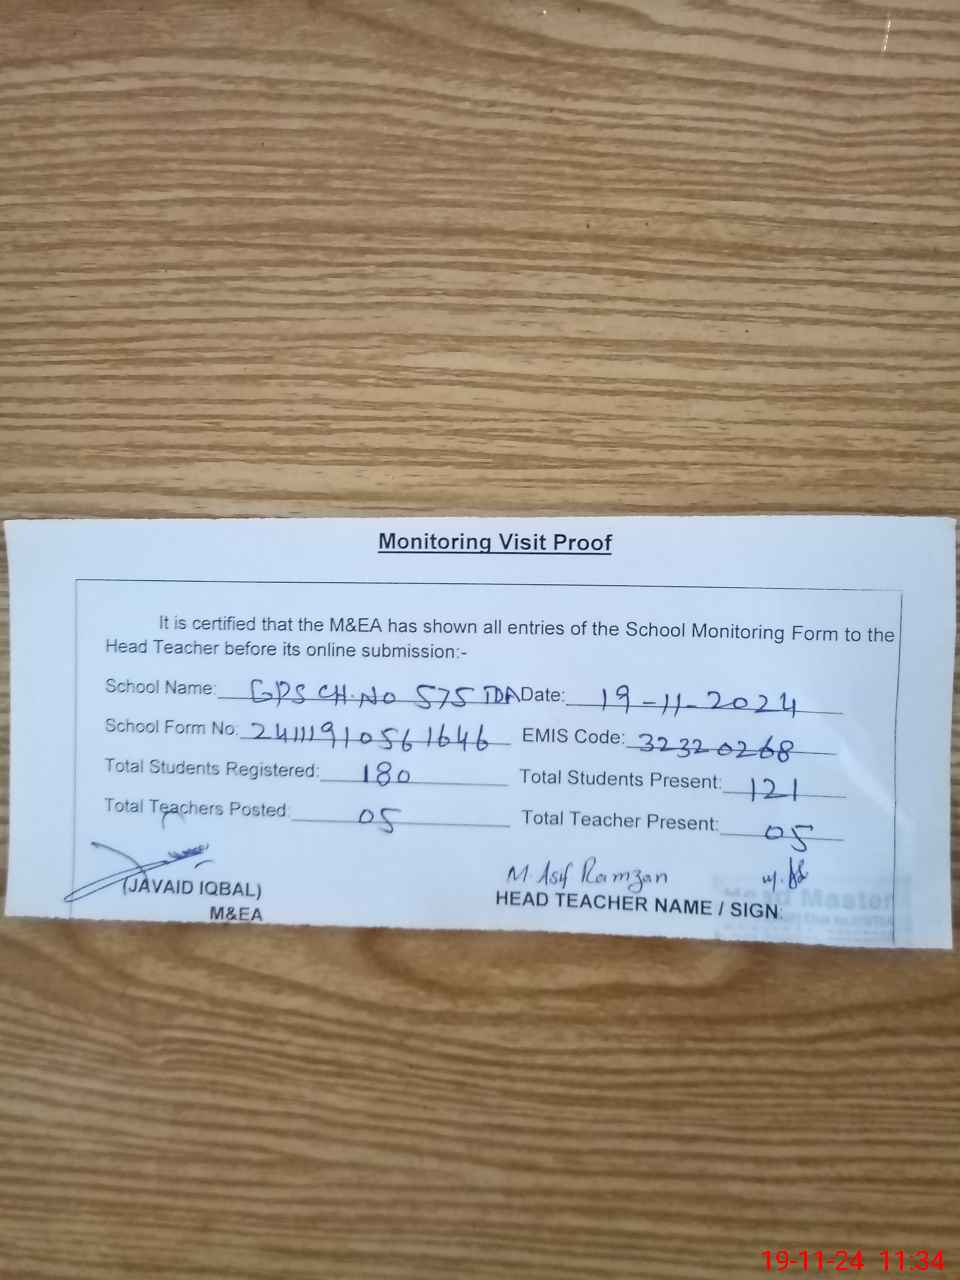 Monitoring Visit Proof
It is certified that the M&EA has shown all entries of the School Monitoring Form to the
Head Teacher before its online submission:-
School Name: GPS CH.NO 575 TDA Date: 19-11-2024
School Form No: 2411191056 1646 EMIS Code: 32320268
Total Students Registered: 180 Total Students Present: 121
Total Teachers Posted: 05 Total Teacher Present: 05
M. Asif Ramzan
(JAVAID IQBAL) HEAD TEACHER NAME / SIGN:
M&EA
Head Master
19-11-24 11:34